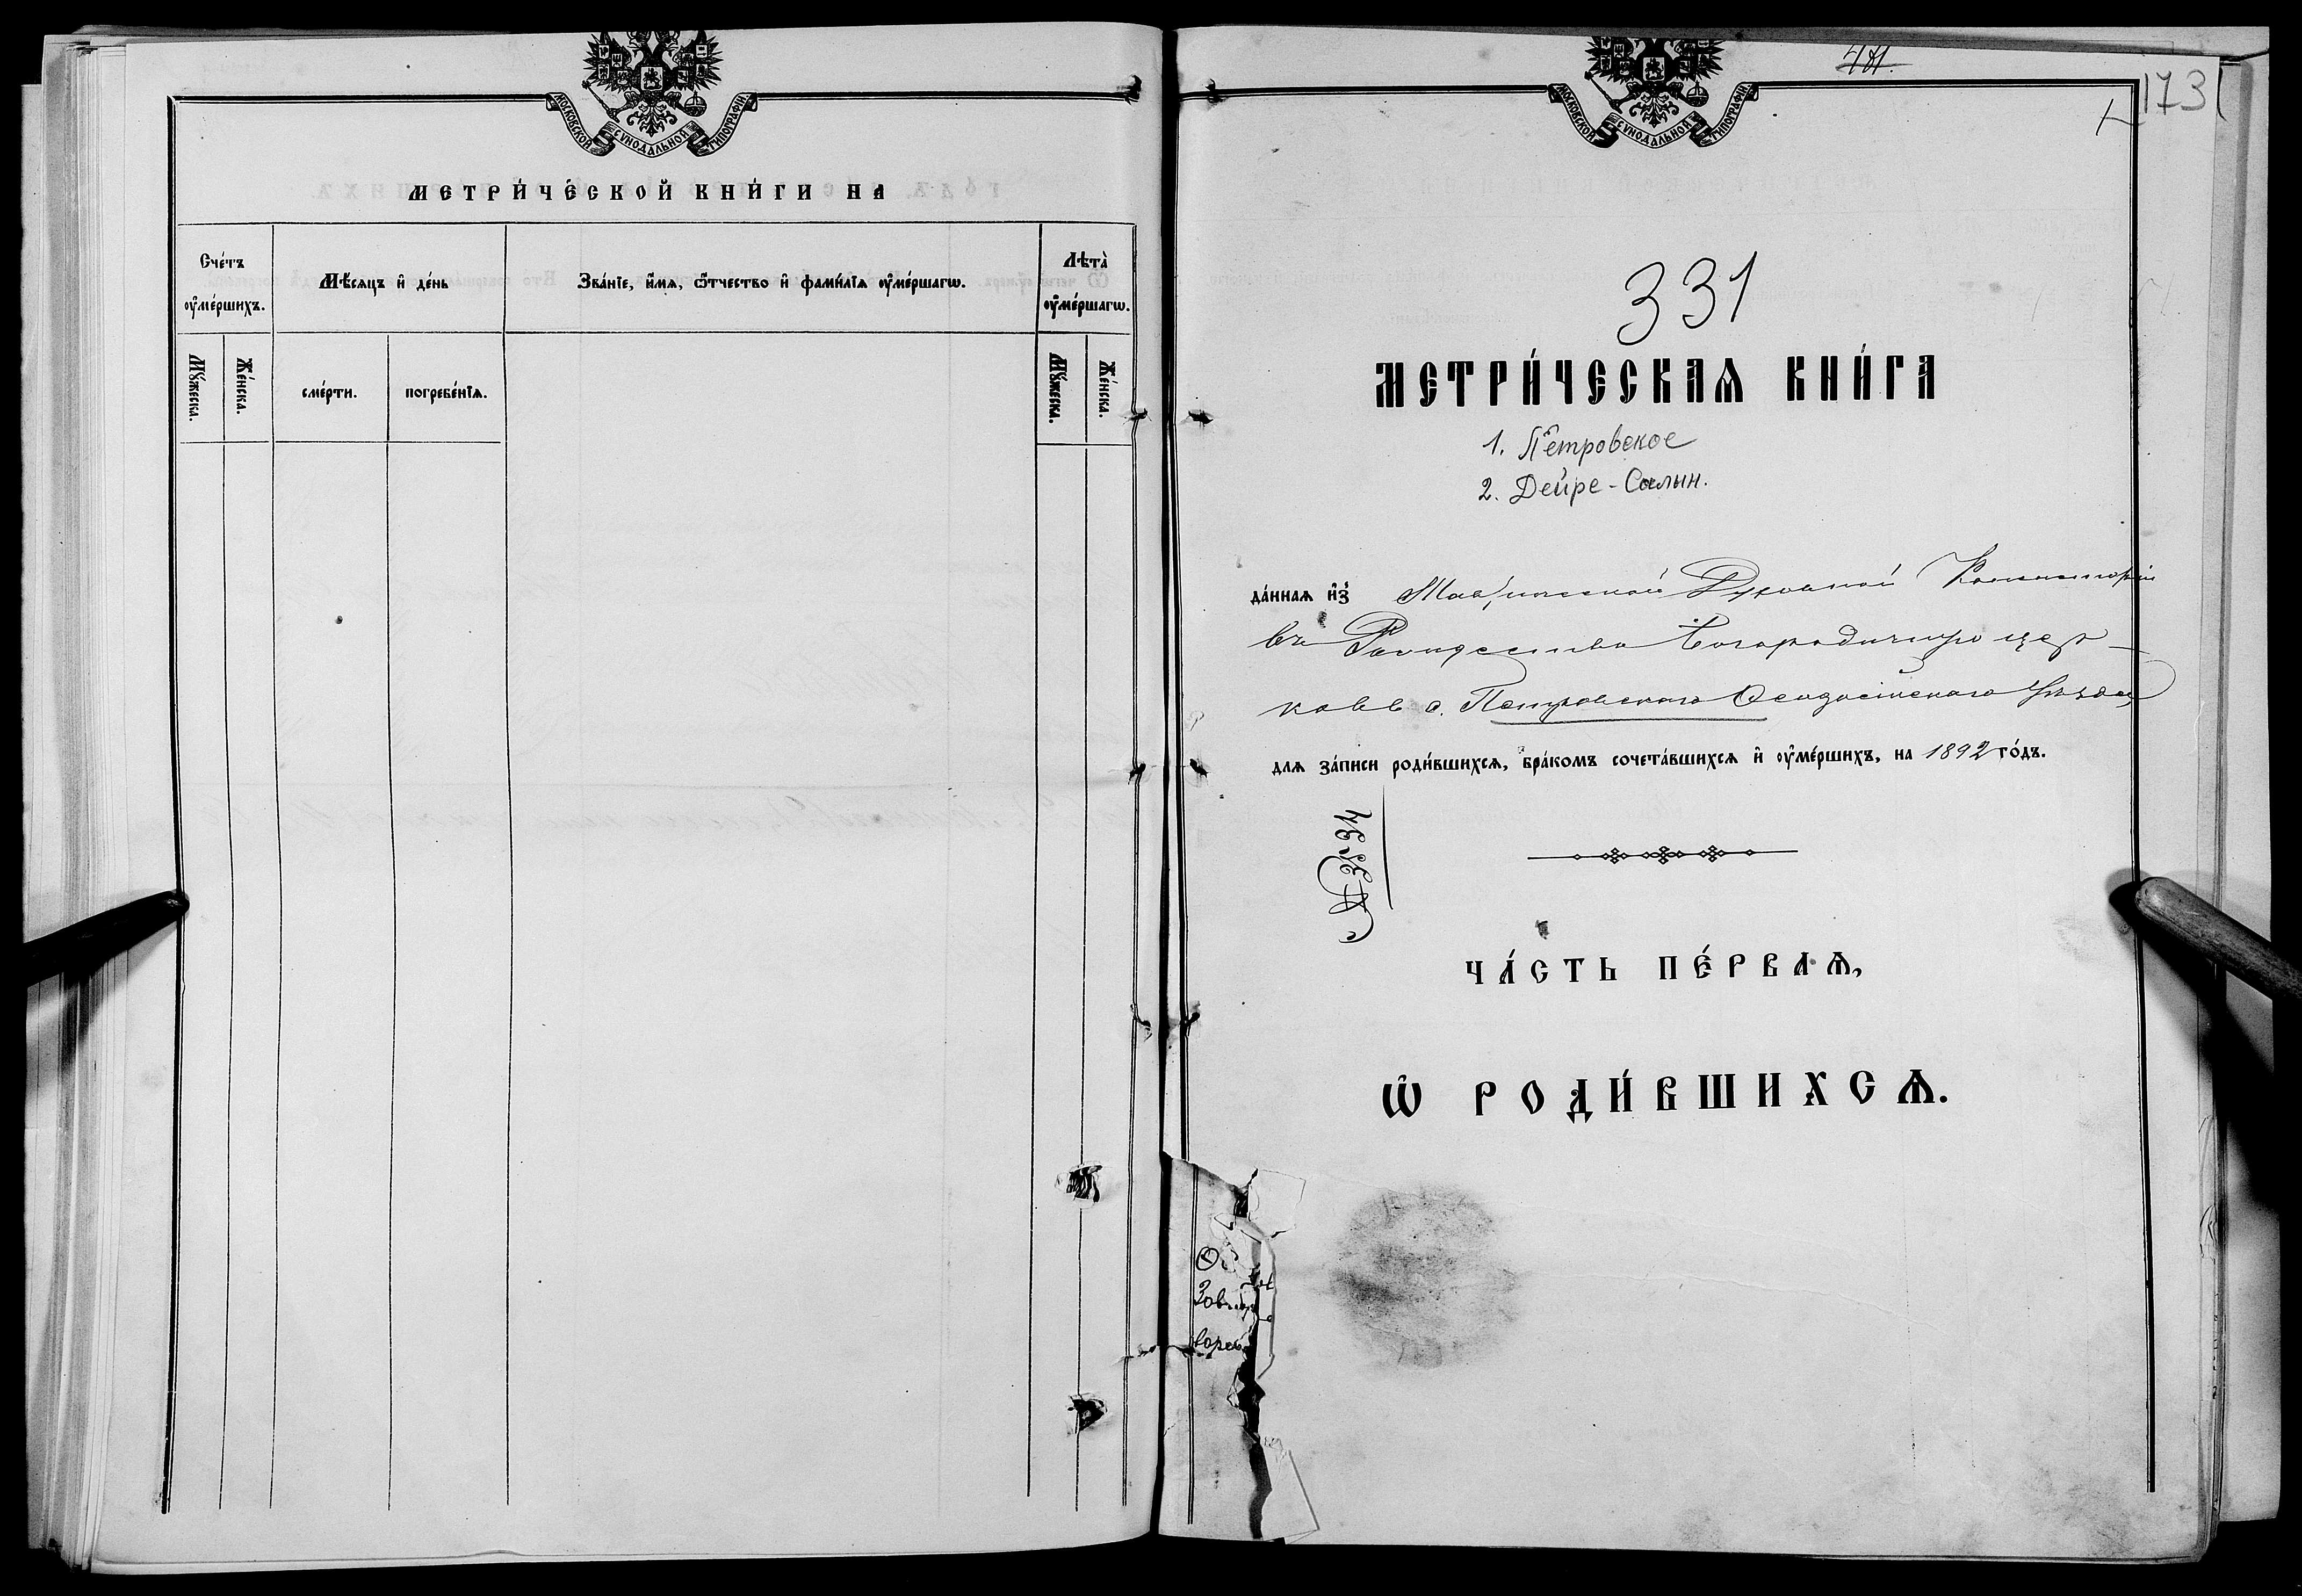 МОСКОВСКОЙ СУНОДАЛЬНОЙ ТИПОГРАФІИ.
МЕТРИ́ЧЕ́СКОЙ КНИ́ГИ НА
Сче́тъ ᲂу҆ме́ршихъ.
Мѣ́сяцъ и҆ де́нь
Зва́нїе, и҆́мѧ, ѻ҆́тчество и҆ фами́лїѧ ᲂу҆ме́ршагѡ.
Лѣта̀ ᲂу҆ме́ршагѡ.
Му́жеска.
Же́нска.
сме́рти.
погребе́нїѧ.
Му́жеска.
Же́нска.
МОСКОВСКОЙ СУНОДАЛЬНОЙ ТИПОГРАФІИ.
173
331
МЕТРИ́ЧЕСКАѦ КНИ́ГА
1. Петровское
2. Дейре-Салын.
да́ннаѧ и҆з̾ Таврической Духовной Консисторіи
въ Рождество Богородичную цер-
ковь с. Петровского Ѳеодосійскаго уѣзда,
длѧ за́писи роди́вшихсѧ, бра́комъ сочета́вшихсѧ и҆ ᲂу҆ме́ршихъ, на 1892 го́дъ.
ЧА́СТЬ ПЕ́РВАѦ,
Ѡ҆ РОДИ́ВШИХСѦ.